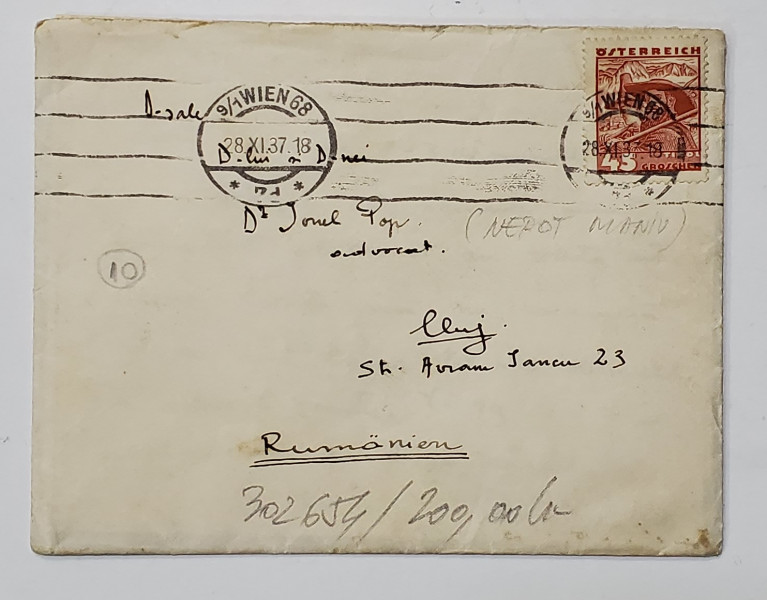 ÖSTERREICH
9/1 WIEN 68
9/1 WIEN 68
D-sale
28.XI.37.18
28.XI.37.18
D-lui și D-nei
45
GROSCHEN
Dr Ionel Pop.
(NEPOT MANIU)
advocat.
10
Cluj.
Str. Avram Iancu 23
Rumänien
302654/200,00 lei